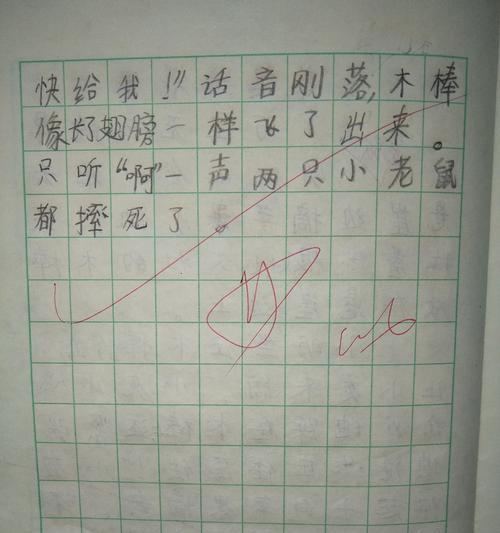 快给我！”话音刚落，木棒
像长了翅膀一样飞了出来。
只听“啊”一声两只小老鼠
都摔死了。